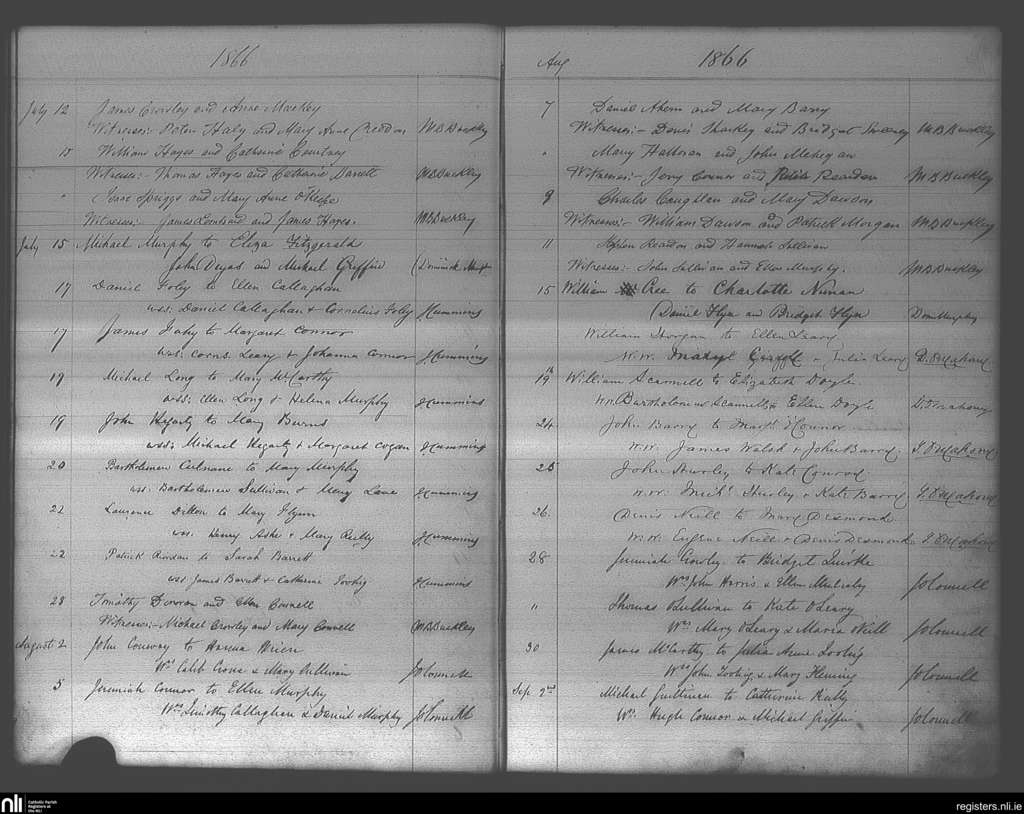 1866
July 12 James Crowley and Anne Mackley
Witnesses:- Peter Haly and Mary Anne Creedon MB Buckley
15 William Hayes and Catherine Courtney
Witnesses:- Thomas Hayes and Catharine Barrett MB Buckley
" Jesse Spriggs and Mary Anne O'Keefe
Witnesses:- James and James Hayes MB Buckley
July 15 Michael Murphy to Eliza Fitzgerald
John Dyas and Michael Griffin Dominick
17 Daniel Foley to Ellen Callaghan
wss: Daniel Callaghan & Cornelius Foley J Cummins
17 James Fahy to Margaret Connor
wss. Corns. Leary & Johanna Connor J Cummins
19 Michael Long to Mary McCarthy
wss: Ellen Long & Helena Murphy J Cummins
19 John Hegarty to Mary Burns
wss: Michael Hegarty & Margaret Cogan J Cummins
20 Bartholemew Culnane to Mary Murphy
wss: Bartholemew Sullivan & Mary Lane J Cummins
22 Laurence Dillon to Mary Flynn
wss. Henry Ashe & Mary Reilly J Cummins
22 Patrick Riordan to Sarah Barrett
wss James Barrett & Catherine J Cummins
28 Timothy Donovan and Ellen Connell
Witnesses:- Michael Crowley and Mary Connell MB Buckley
August 2 John Conway to Hanna Brien
Ws Caleb Crone & Mary Sullivan
5 Jeremiah Connor to Ellen Murphy
Wss Timothy Callaghan & Daniel Murphy
Aug 1866
7 Daniel Ahern and Mary Barry
Witnesses:- Denis Sharkey and Bridget Sweeney MB Buckley
" Mary Halloran and John Mehegan
Witnesses:- Jery Connor and Reardon MB Buckley
9 Charles Coughlan and Mary Dawson
Witnesses:- William Dawson and Patrick Morgan MB Buckley
11 Stephen Reardon and Hannah Sullivan
Witnesses:- John Sullivan and Ellen Murphy. MB Buckley
15 William Cree to Charlotte Nunan
Daniel Flyn and Bridget Flyn Murphy
William Horgan to Ellen Leary
W.W. & Julia Leary D. O'Mahony
19th William Scannell to Elizabeth Doyle
Bartholomew Scannell & Ellen Doyle D. O'Mahony
24 John Barry to Margt O'Connor
W.W. James Walsh & John Barry O'Mahony
25 John Hurley to Kate Conroy
W.W. Michl Hurley & Kate Barry O'Mahony
26. Denis Neill to Mary Desmond
W.W. Eugene Neill & Denis Desmond O'Mahony
28 Jeremiah Crowley to Bridget Quirke
Wss John Harris & Ellen Mulcahy
" Thomas O'Sullivan to Kate O'Leary
Wss Mary O'Leary & Maria Neill
30 James McCarthy to Julia Anne
Wss John & Mary Fleming
Sep. 2nd Michael Sullivan to Catherine Kelly
Ws. Hugh Connor & Michael Griffin
nli
Catholic Parish
Registers at
the NLI
registers.nli.ie